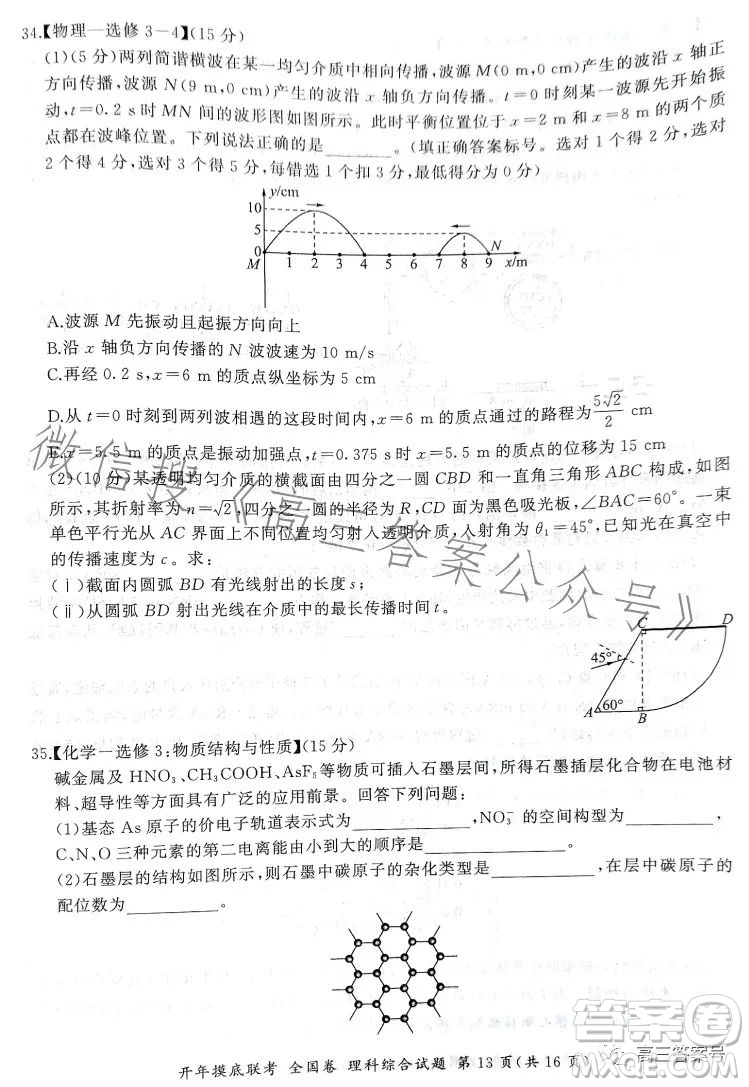 34.【物理—选修3-4】(15分)
(1)(5分)两列简谐横波在某一均匀介质中相向传播，波源M(0 m,0 cm)产生的波沿x轴正
方向传播，波源N(9 m,0 cm)产生的波沿x轴负方向传播。t=0时刻某一波源先开始振
动，t=0.2 s时MN间的波形图如图所示。此时平衡位置位于x=2 m和x=8 m的两个质
点都在波峰位置。下列说法正确的是______。(填正确答案标号。选对1个得2分，选对
2个得4分，选对3个得5分，每错选1个扣3分，最低得分为0分)
y/cm
10
5
0
M 1 2 3 4 5 6 7 8 9 x/m
N
A.波源M先振动且起振方向向上
B.沿x轴负方向传播的N波波速为10 m/s
C.再经0.2 s，x=6 m的质点纵坐标为5 cm
D.从t=0时刻到两列波相遇的这段时间内，x=6 m的质点通过的路程为5√2/2 cm
E.x=5.5 m的质点是振动加强点，t=0.375 s时x=5.5 m的质点的位移为15 cm
(2)(10分)某透明均匀介质的横截面由四分之一圆CBD和一直角三角形ABC构成，如图
所示，其折射率为n=√2，四分之一圆的半径为R，CD面为黑色吸光板，∠BAC=60°。一束
单色平行光从AC界面上不同位置均匀射人透明介质，入射角为θ₁=45°，已知光在真空中
的传播速度为c。求：
(ⅰ)截面内圆弧BD有光线射出的长度s；
(ⅱ)从圆弧BD射出光线在介质中的最长传播时间t。
C D
45°
60°
A B
35.【化学—选修3：物质结构与性质】(15分)
碱金属及HNO₃、CH₃COOH、AsF₅等物质可插人石墨层间，所得石墨插层化合物在电池材
料、超导性等方面具有广泛的应用前景。回答下列问题：
(1)基态As原子的价电子轨道表示式为________，NO₃⁻的空间构型为________，
C、N、O三种元素的第二电离能由小到大的顺序是________。
(2)石墨层的结构如图所示，则石墨中碳原子的杂化类型是________，在层中碳原子的
配位数为________。
开年摸底联考 全国卷 理科综合试题 第13页(共16页)
微信搜《高三答案公众号》
答案圈
高三答案号